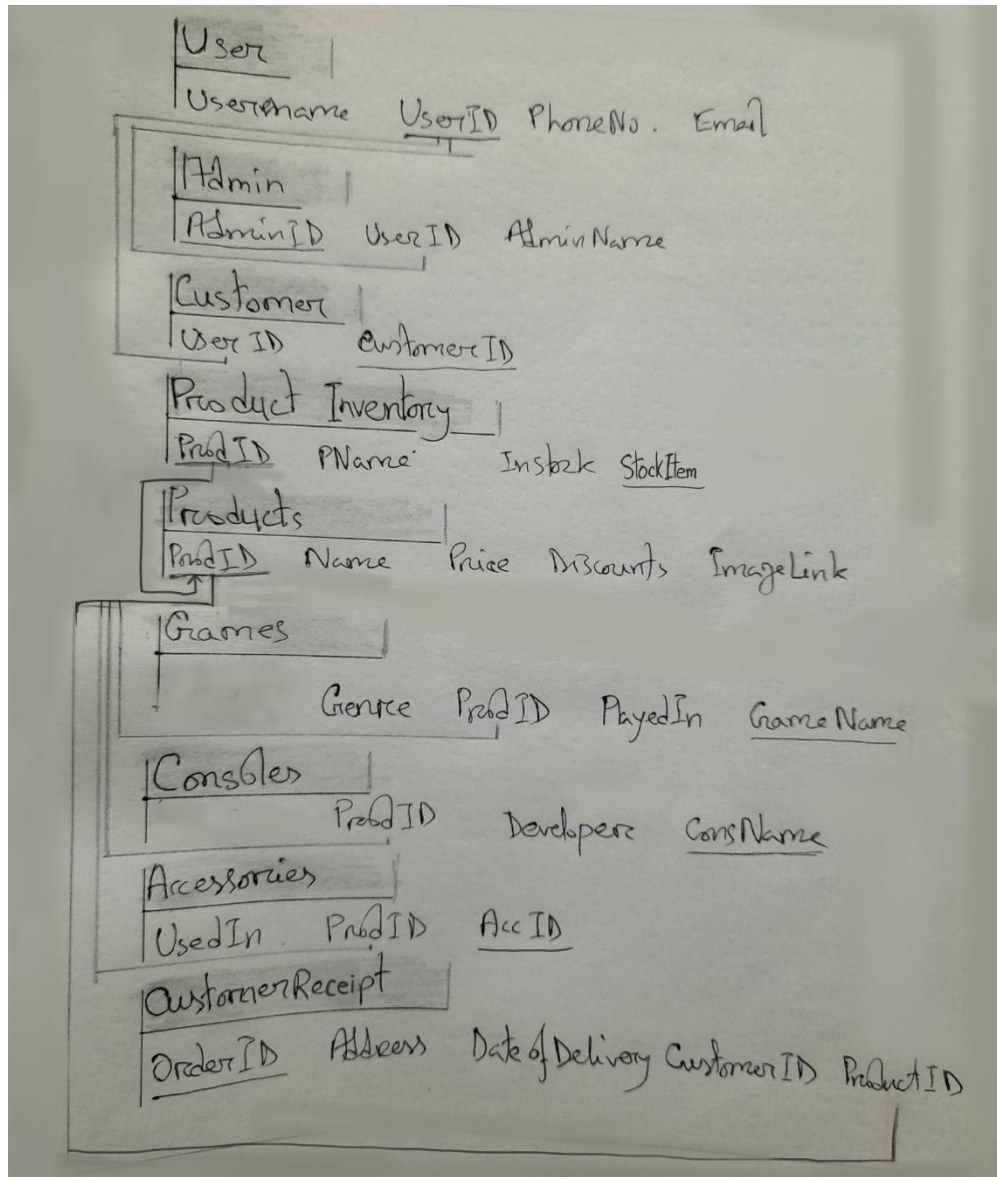 User
Username UserID PhoneNo. Email
Admin
AdminID UserID AdminName
Customer
UserID CustomerID
Product Inventory
ProdID PName Instock StockItem
Products
ProdID Name Price Discounts ImageLink
Games
Genre ProdID PlayedIn GameName
Consoles
ProdID Developer ConsName
Accessories
UsedIn ProdID AccID
CustomerReceipt
OrderID Address DateofDelivery CustomerID ProductID